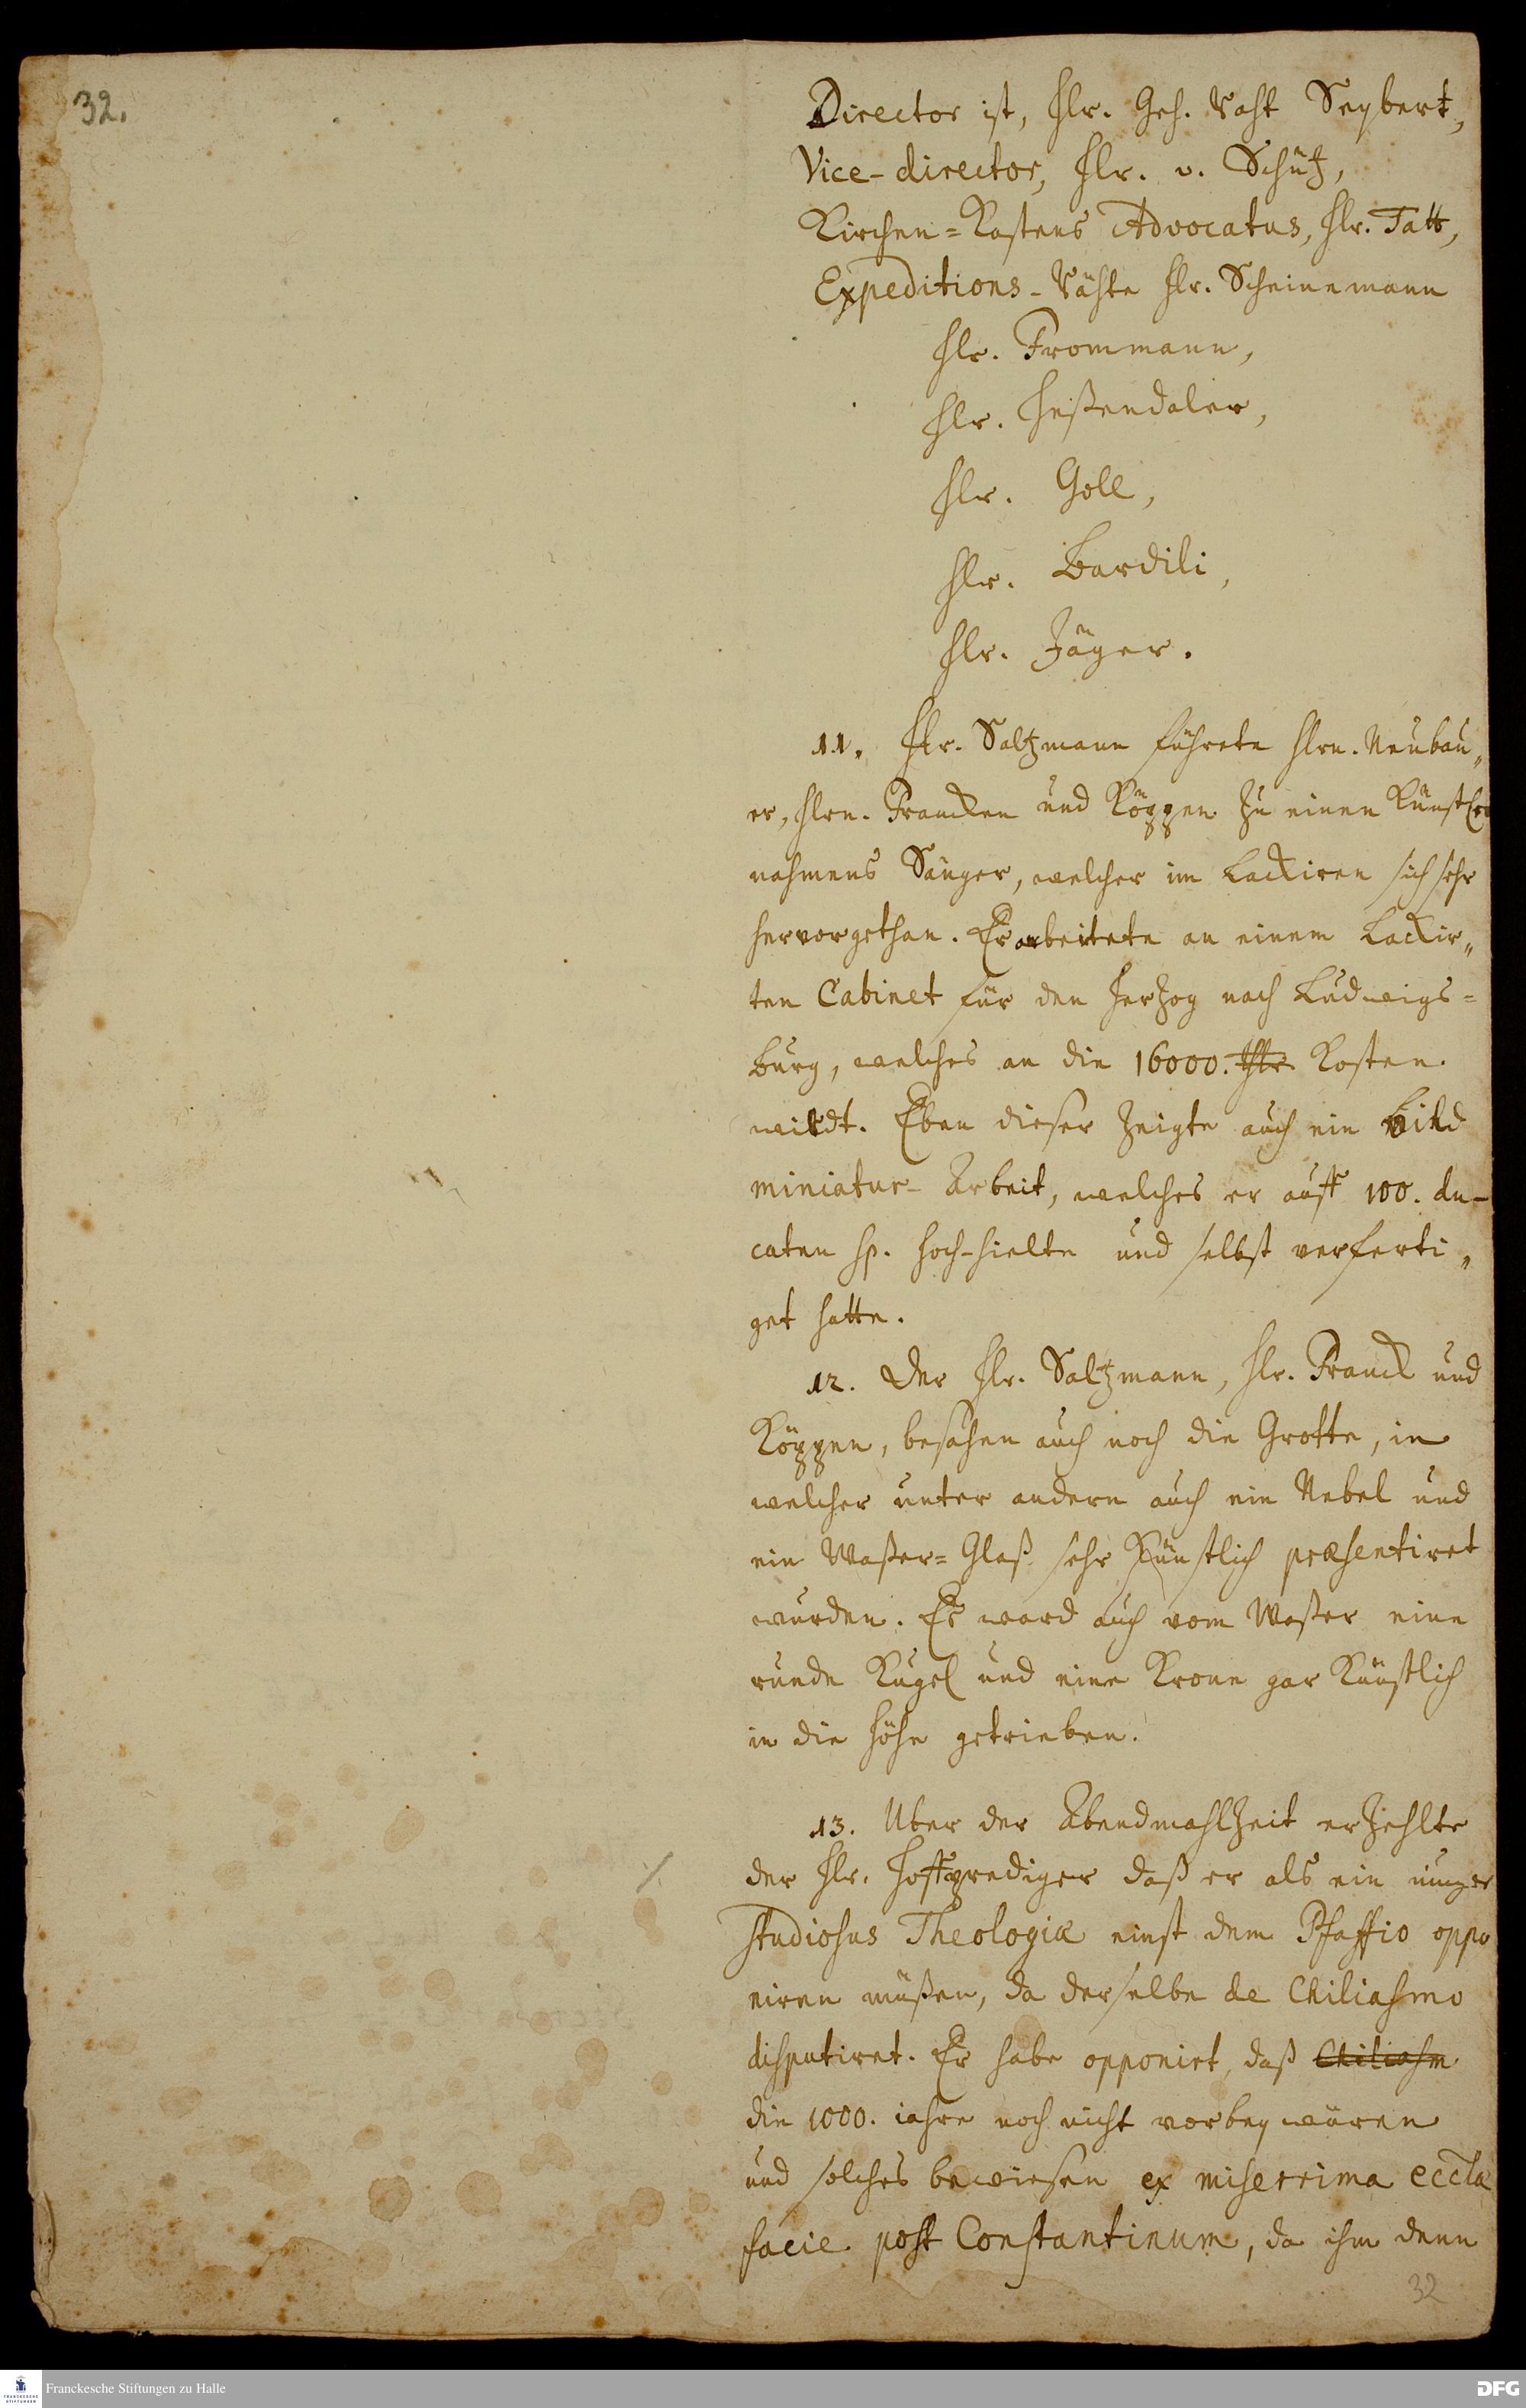 32.
Director ist, Hr. Geh. Raht Seybert,
Vice-director, Hr. v. Schütz,
Kirchen-Kastens Advocatus, Hr. Tatt,
Expeditions-Rähte Hr. Scheinemann
Hr. Frommann,
Hr. Heßendaler,
Hr. Goll,
Hr. Bardili,
Hr. Jäger.
11. Hr. Saltzmann führete Hrn. Neubau„
er, Hrn. Francken und Köppen zu einen Künstler
nahmens Sänger, welcher im Lackiren sich sehr
hervorgethan. Er arbeitete an einem Lackir„
ten Cabinet für den Herzog nach Ludwigs-
burg, welches an die 16000. thlr Kosten
wirdt. Eben dieser zeigte auch ein Bild
miniatur-Arbeit, welches er auff 100. du-
caten sp. hoch-hielte und selbst verferti„
get hatte.
12. Der Hr. Saltzmann, Hr. Franck und
Köppen, besahen auch noch die Grotte, in
welcher unter andern auch ein Nebel und
ein Waßer-Glaß sehr Künstlich præsentiret
wurden. Es ward auch vom Waßer eine
runde Kugel und eine Krone gar Künstlich
in die Höhe getrieben.
13. Uber der Abendmahlzeit erzehlte
der Hr. Hoffprediger daß er als ein iunger
studiosus Theologiæ einst dem Pfaffio oppo
niren müßen, da derselbe de Chiliasmo
disputiret. Er habe opponirt, daß Chiliasm
die 1000. iahre noch nicht vorbey wären
und solches bewiesen ex miserrima eccla
facie post Constantinum, da ihm denn
32
Franckesche Stiftungen zu Halle
DFG